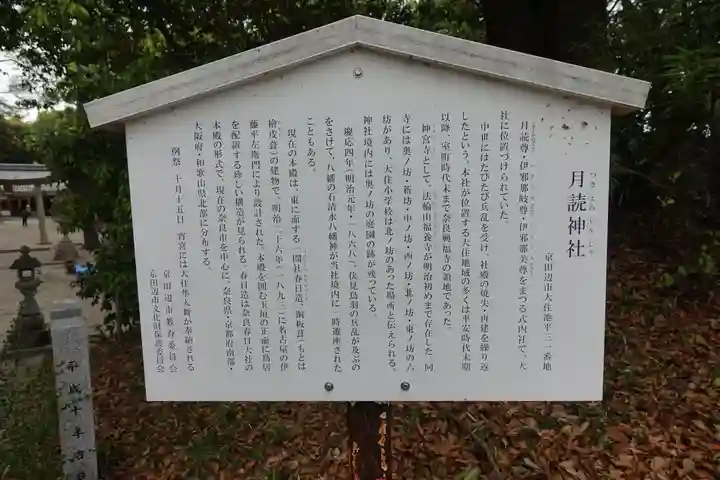 つきよみじんじゃ
月読神社
京田辺市大住池平三一番地
月読尊・伊邪那岐尊・伊邪那美尊をまつる式内社で、大
社に位置づけられていた。
中世にはたびたび兵乱を受け、社殿の焼失・再建を繰り返
したという。本社が位置する大住地域の多くは平安時代末期
以降、室町時代末まで奈良興福寺の領地であった。
神宮寺として、法輪山福養寺が明治初めまで存在した。同
寺には奥ノ坊・新坊・中ノ坊・西ノ坊・北ノ坊・東ノ坊の六
坊があり、大住小学校は北ノ坊のあった場所と伝えられる。
神社境内には奥ノ坊の庭園の跡が残っている。
慶応四年(明治元年・一八六八)、伏見鳥羽の兵乱が及ぶの
をさけて、八幡の石清水八幡神が当社境内に一時遷座された
こともある。
現在の本殿は、東に面する一間社春日造、銅板葺(もとは
檜皮葺)の建物で、明治二十六年(一八九三)に名古屋の伊
藤平左衛門により設計された。本殿を囲む玉垣の正面に鳥居
を配置する珍しい構造が見られる。春日造は奈良春日大社の
本殿の形式で、現在の奈良市を中心に、奈良県・京都府南部・
大阪府・和歌山県北部に分布する。
例祭 十月十五日 宵宮には大住隼人舞が奉納される
京田辺市教育委員会
京田辺市文化財保護委員会
平成十年吉日